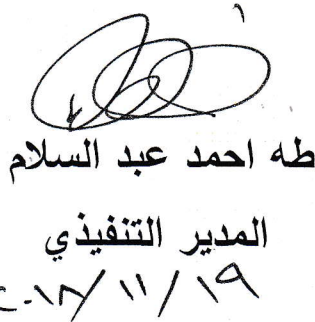 طه احمد عبد السلام
المدير التنفيذي
٢٠١٨/١١/١٩